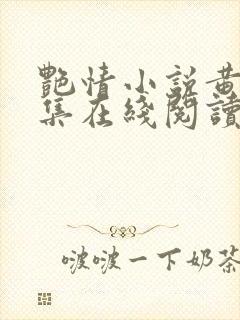 艷情小說黄
集在綫閱讀
啵啵一下奶茶